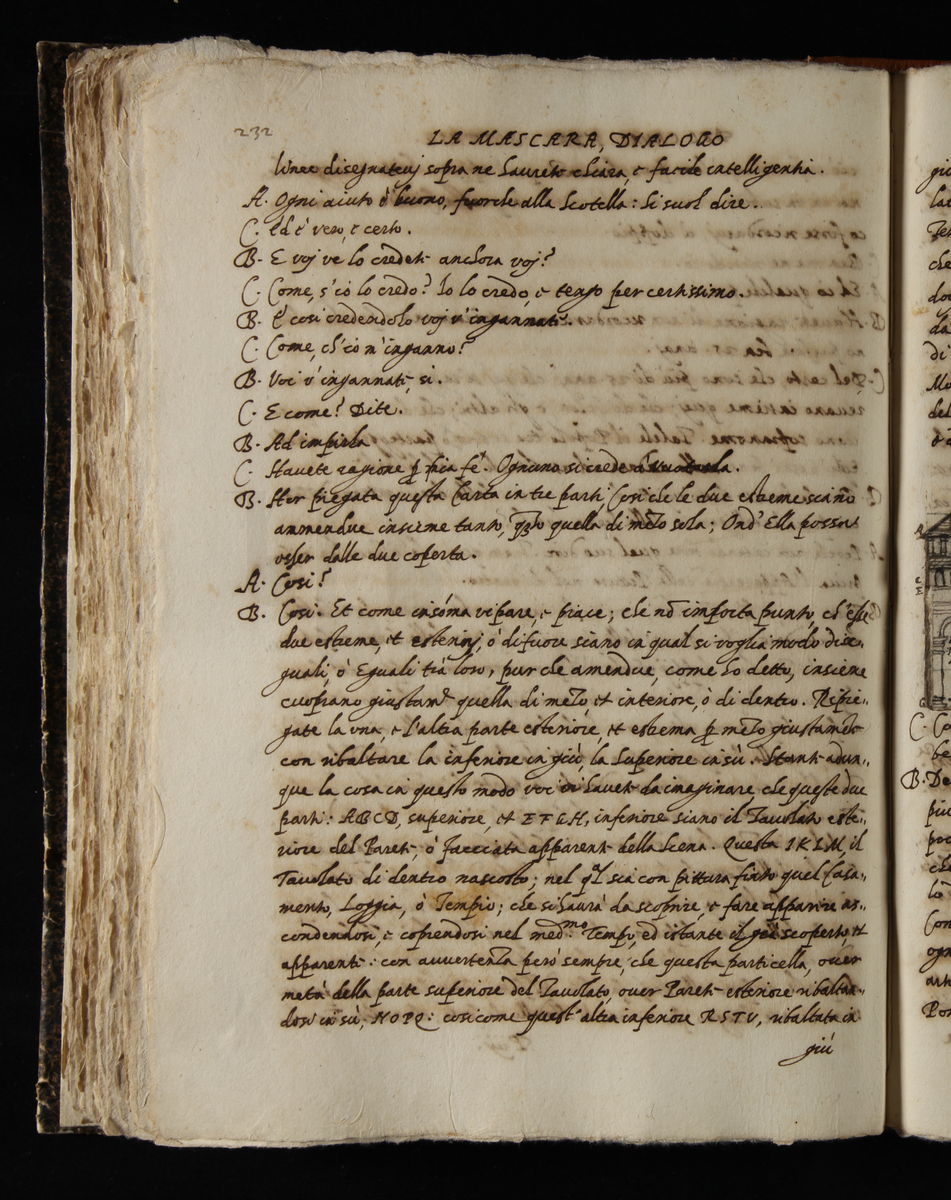 232
LA MASCARA, DIALOGO
linee disegnatevj sopra ne havrete chiara, e facile intelligentia.
A. Ogni aiuto è buono, fuorche alla Scotella: si suol dire.
C. Ed è vero, e certo.
B. E voj ve lo credete anchora voj?
C. Come, s'io lo credo? Io lo credo, e tengo per certissimo.
B. E cosi credendolo voj v'ingannate.
C. Come, ch'io m'inganno?
B. Voi v'ingannate, si.
C. E come? Dite.
B. Ad impirla
C. Havete ragione p mia fé. Ognuno si crede
B. Hor piegata questa Carta in tre parti Cosi che le due estreme siano
ammendue insieme tanto, qto quella di mezo sola; Ond' Ella possa
esser dalle due coperta.
A. Cosi?
B. Cosi. Et come insóma vi pare, e piace; che nō importa punto, ch'esse
due estreme, et esteriorj, ò di fuore siano in qual si voglia modo dise-
guali, ò Eguali trà loro, pur che amendue, come hò detto, insieme
cuoprano giustamte quella di mezo et interiore, ò di dentro. Ripie-
gate la vna, e l'altra parte esteriore, et estrema p mezo giustamte
con ribaltare la inferiore in giù, la superiore in sù. Stante adun-
que la cosa in questo modo voi havete da imaginare che queste due
parti: ABCD, superiore, et EFGH, inferiore siano il Tavolato este-
riore del Parete, ò facciata apparente della Scena. Questa IKLM, il
Tavolato di dentro nascosto; nel ql sia con pittura finto quel Casa-
mento, Loggia, ò Tempio; che si havrà da scoprire, e fare apparire as-
condendosi, e coprendosi nel medmo Tempo, ed istante il già scoperto, et
apparente: con avvertenza però sempre, che questa particella, over
metà della parte superiore del Tavolato, over Parete esteriore ribaltan-
dosi in sù, NOPQ: cosi come quest'altra inferiore RSTV, ribaltata in
giù